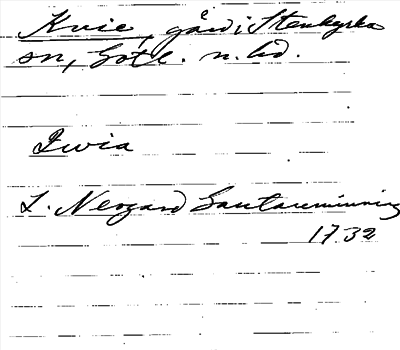 Kvie, gård i Stenkyrka
sn, Gotl. n. hd.
Qwia
L. Neogard Gautauminning
1732